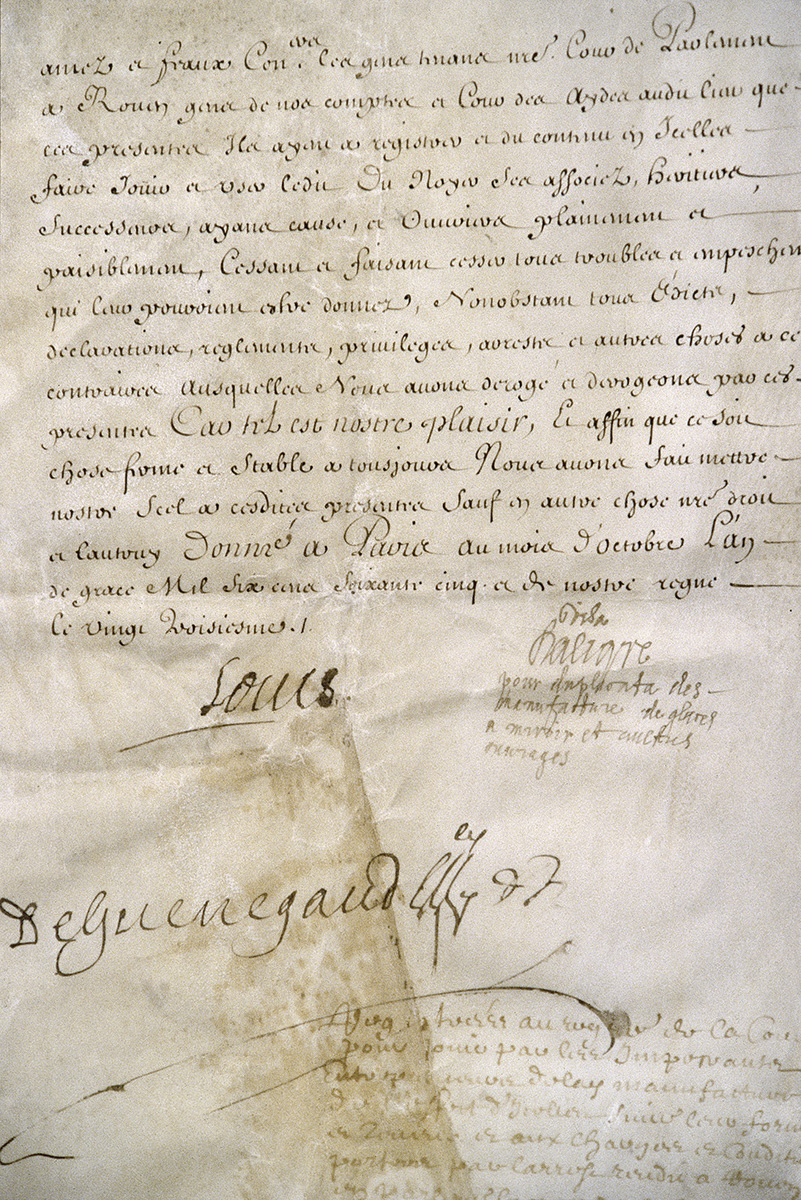 amez et feaux Con.ers les gens tenans nre. Cour de Parlement
a Rouen gens de nos comptes et Cour des Aydes audit lieu que
ces presentes Ils ayent a registrer et du contenu en Icelles
faire Jouir et user ledit Du Noyer Ses associez, heritiers,
Successeurs, ayans cause, et Ouvriers plainement et
paisiblement, Cessant et faisant cesser tous troubles et empeschemens
qui leur pouroient estre donnez, Nonobstant tous Édicts,
declarations, reglements, privileges, arrests et autres choses a ce
contraires Ausquelles Nous avons derogé et derogeons par ces
presentes Car tel est nostre plaisir, Et affin que ce soit
chose ferme et Stable a tousjours Nous avons fait mettre
nostre Scel a cesdites presentes Sauf en autre chose nre droit
et lautruy Donné a Paris au mois d'octobre L'an
de grace Mil Six cens Soixante cinq et de nostre regne
Le vingt troisiesme.
Louis
Visa
Daligre
pour des
manufacture de glaces
a miroir et autres
ouvrages
DeGuenegaud
Registrées au registre de la Cour
pour Jouir par les Impetrants
de lad manufacture
de l'effet d'Icelles
et aux charges et conditions
portees par larrest rendu a Rouen